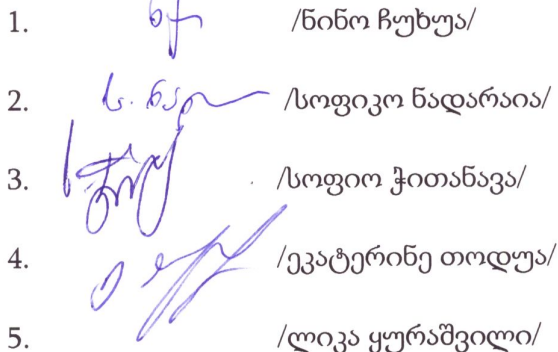 1. /ნინო ჩუხუა/
2. ს. ნად /სოფიკო ნადარაია/
3. /სოფიო ჭითანავა/
4. /ეკატერინე თოდუა/
5. /ლიკა ყურაშვილი/